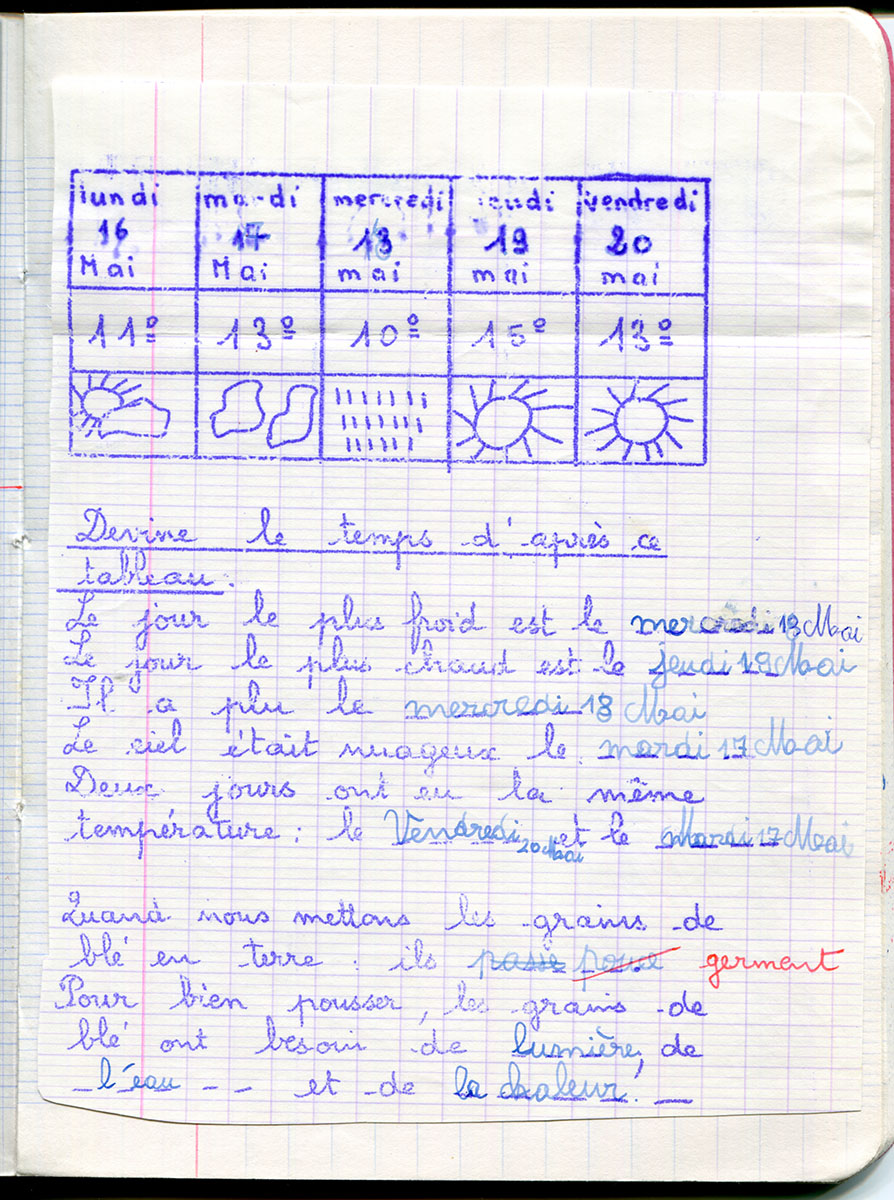 lundi mardi mercredi jeudi vendredi
16 17 18 19 20
Mai Mai mai mai mai
11° 13° 10° 15° 13°
Devine le temps d'après ce
tableau.
Le jour le plus froid est le mercredi 18 Mai
Le jour le plus chaud est le jeudi 19 Mai
Il a plu le mercredi 18 Mai
Le ciel était nuageux le mardi 17 Mai
Deux jours ont eu la même
température : le Vendredi 20 Mai et le Mardi 17 Mai
Quand nous mettons les grains de
blé en terre : ils germent
Pour bien pousser, les grains de
blé ont besoin de lumière, de
l'eau et de la chaleur.